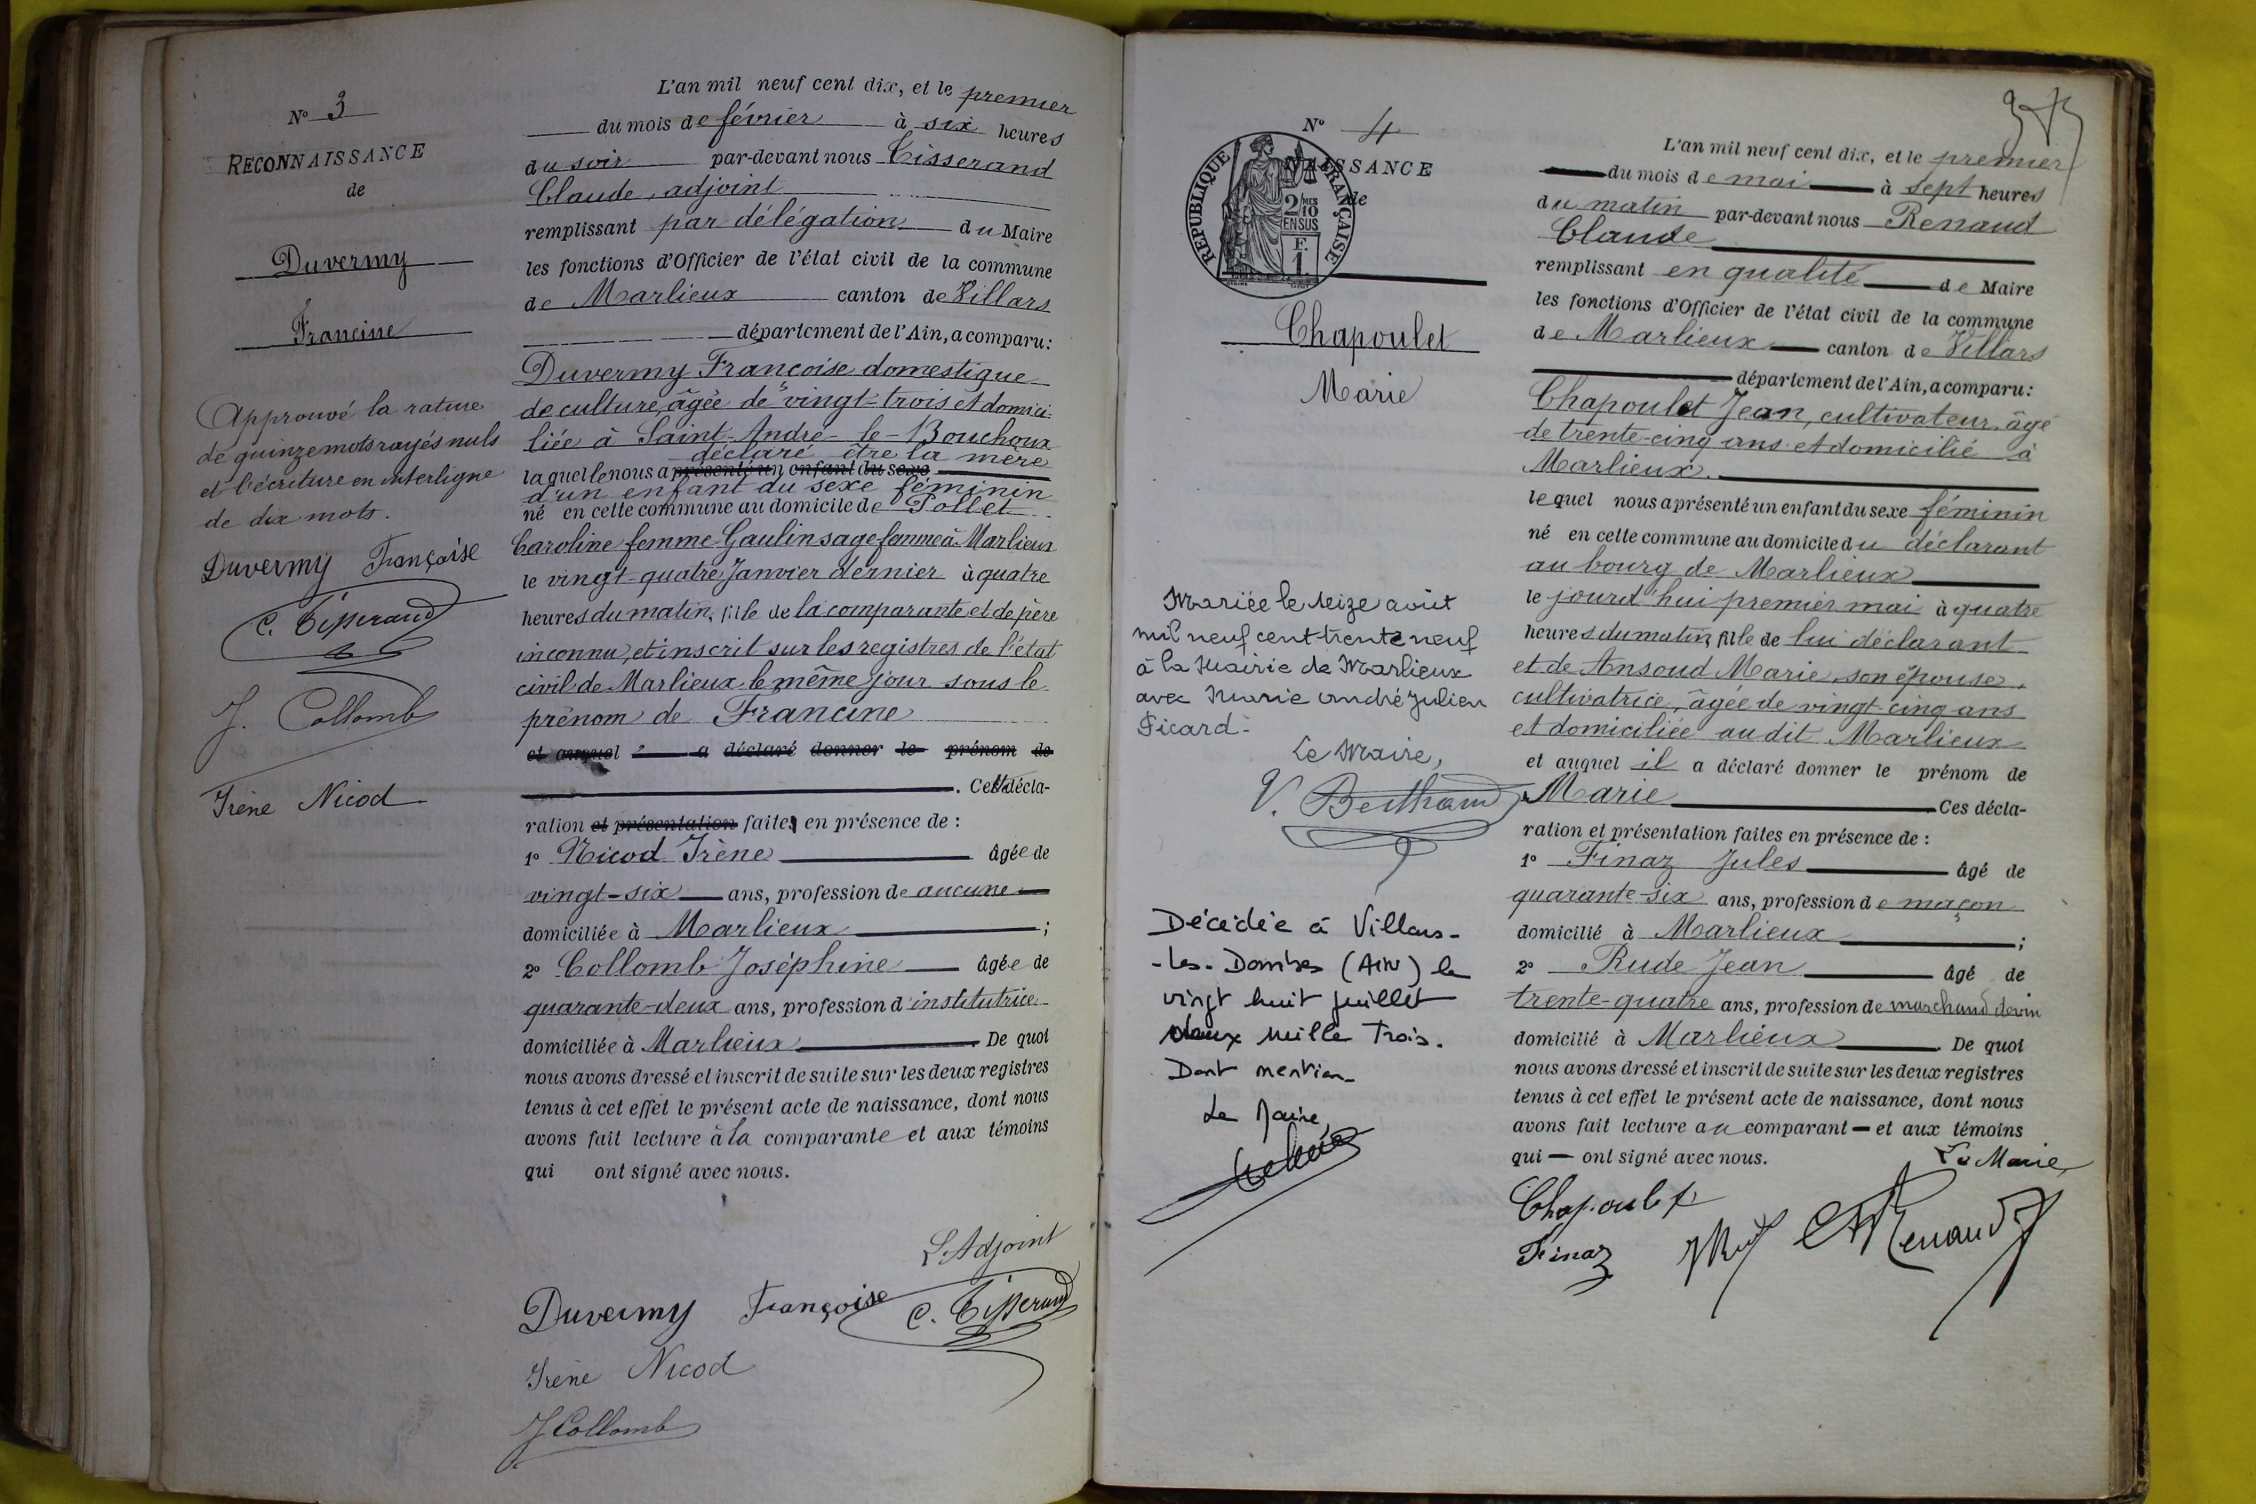 N° 3
RECONNAISSANCE
de
Duvermy
Francine
Approuvé la rature
de quinze mots rayés nuls
et l'écriture en interligne
de dix mots.
Duvermy Françoise
C. Tisserand
J. Collomb
Irène Nicod
L'an mil neuf cent dix, et le premier
du mois de février à six heures
du soir par-devant nous Tisserand
Claude, adjoint
remplissant par délégation du Maire
les fonctions d'Officier de l'état civil de la commune
de Marlieux canton de Villars
département de l'Ain, a comparu :
Duvermy Françoise domestique
de culture, âgée de vingt-trois et domici-
liée à Saint-André-le-Bouchoux
déclaré être la mère
laquelle nous a présenté un enfant du sexe
d'un enfant du sexe féminin
né en cette commune au domicile de Pollet
Caroline femme Gaulin sage femme à Marlieux
le vingt-quatre Janvier dernier à quatre
heures du matin, fille de la comparante et de père
inconnu, et inscrit sur les registres de l'état
civil de Marlieux le même jour sous le
prénom de Francine
et auquel a déclaré donner le prénom de
. Cette décla-
ration et présentation faite, en présence de :
1° Nicod Irène âgée de
vingt-six ans, profession de aucune
domiciliée à Marlieux ;
2° Collomb Joséphine âgée de
quarante-deux ans, profession d'institutrice
domiciliée à Marlieux. De quoi
nous avons dressé et inscrit de suite sur les deux registres
tenus à cet effet le présent acte de naissance, dont nous
avons fait lecture à la comparante et aux témoins
qui ont signé avec nous.
L'Adjoint
Duvermy Françoise C. Tisserand
Irène Nicod
J Collomb
N° 4
NAISSANCE
de
RÉPUBLIQUE FRANÇAISE
2/10 MES
EN SUS
F.
1.
Chapoulet
Marie
Mariée le seize août
mil neuf cent trente neuf
à la Mairie de Marlieux
avec Marie André Julien
Ficard.
Le Maire,
V. Berthaud
Décédée à Villars-
-les-Dombes (Ain) le
vingt huit juillet
deux mille Trois.
Dont mention
Le Maire,
L'an mil neuf cent dix, et le premier
du mois de mai à sept heures
du matin par-devant nous Renaud
Claude
remplissant en qualité de Maire
les fonctions d'Officier de l'état civil de la commune
de Marlieux canton de Villars
département de l'Ain, a comparu :
Chapoulet Jean, cultivateur, âgé
de trente-cinq ans et domicilié à
Marlieux.
lequel nous a présenté un enfant du sexe féminin
né en cette commune au domicile du déclarant
au bourg de Marlieux
le jourd'hui premier mai à quatre
heures du matin, fille de lui déclarant
et de Ansoud Marie, son épouse,
cultivatrice, âgée de vingt-cinq ans
et domiciliée au dit Marlieux
et auquel il a déclaré donner le prénom de
Marie Ces décla-
ration et présentation faites en présence de :
1° Finaz Jules âgé de
quarante-six ans, profession de maçon
domicilié à Marlieux ;
2° Rude Jean âgé de
trente-quatre ans, profession de marchand de vin
domicilié à Marlieux. De quoi
nous avons dressé et inscrit de suite sur les deux registres
tenus à cet effet le présent acte de naissance, dont nous
avons fait lecture au comparant et aux témoins
qui ont signé avec nous.
Le Maire,
Chapoulet
Finaz Renaud